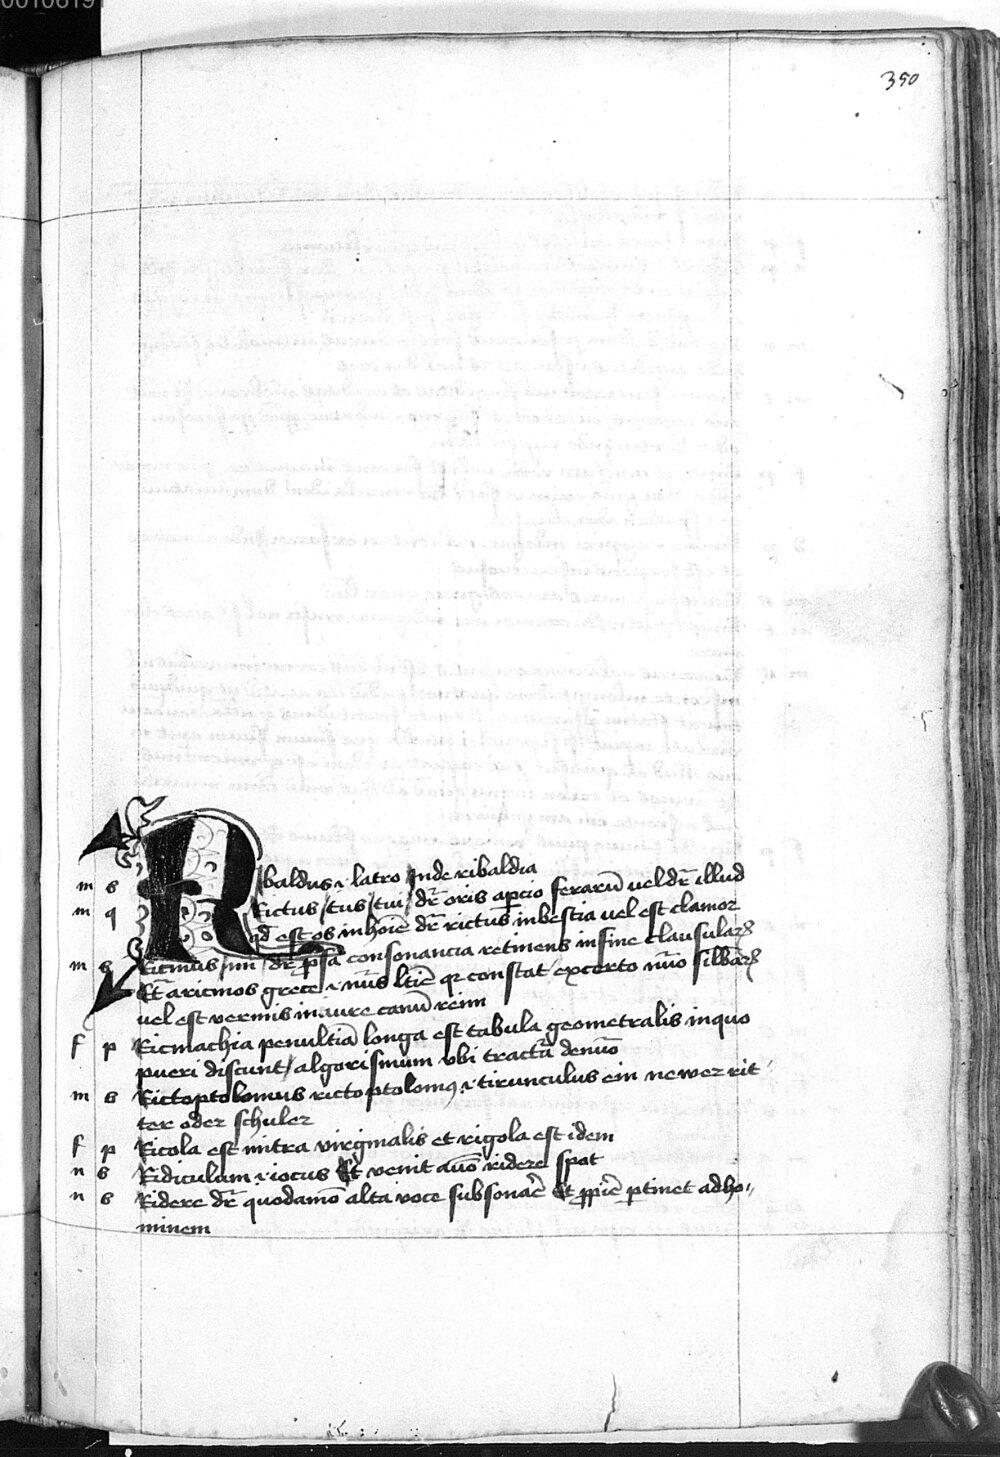 350
m s Ribaldus .i. latro Inde ribaldia
m q Rictus / tus / tui / dr̄ oris apcio ferarū vel dr̄ illud
qd̄ est os in hoīe dr̄ rictus in bestia vel est clamor
m s Ricmus / mi / dr̄ p̄sa consonancia retinens in fine clausulaꝝ
Et a ricmos grece .i. nūs ltīe qꝛ constat excerto nūo sillbaꝝ
vel est vermis in aure canū reim
f p Ricmachia penultīa longa est tabula geometralis in quo
pueri discunt / algorismum vbi tractā denuo
m s Rictoptolomus ricto ptolomꝰ .i. tirunculus ein newer rit
ter oder schuler
f p Ricola est mitra virginalis et rigola est idem
n s Ridiculum .i. iocus Et venit a ūo ridere spot
n s Ridere dr̄ quodamō alta voce subsonāe Et ꝓpīe ꝑtinet ad ho
minem